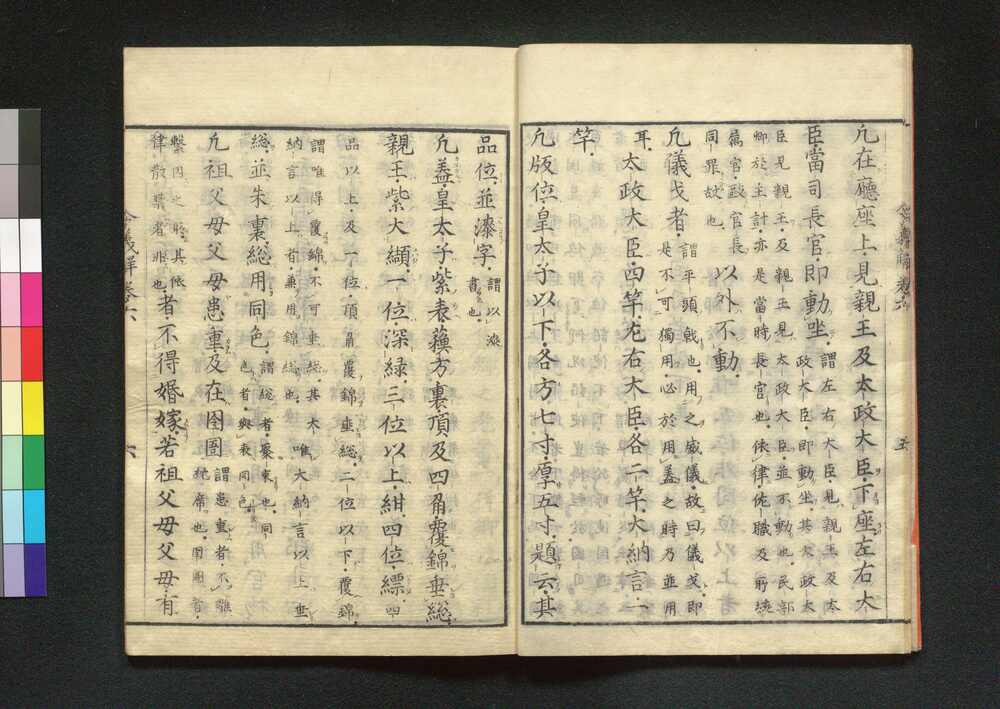 凢在廳座上見親王及太政大臣下座左右大
臣當司長官即動坐謂左右大臣見親王及太
政大臣即動坐其太政大
臣見親王及親王見太政大臣並不動也民部
卿於主計亦是當時長官也依律佐職及所統
屬官敺官長
同罪故也以外不動
凢儀戈者謂平頭戟也用之威儀故曰儀戈即
是不可獨用必於用蓋之時乃並用
耳太政大臣四竿左右大臣各二竿大納言一
竿
凢版位皇太子以下各方七寸厚五寸題云其
品位並漆字謂以漆
書也
凢蓋皇太子紫表蘓方裏頂及四角覆錦垂総
親王紫大纈一位深緑三位以上紺四位縹四
品以上及一位頂角覆錦垂総二位以下覆錦
謂唯得覆錦不可垂総其大
納言以上者兼用錦総也唯大納言以上垂
総並朱裏総用同色謂総者聚束也同
色者與表同色
凢祖父母父母患重及在囹圄謂患重者不離
枕席也囹圄者
繫囚之所其依
律散禁者非也者不得婚嫁若祖父母父母有
令義解卷六
五
六